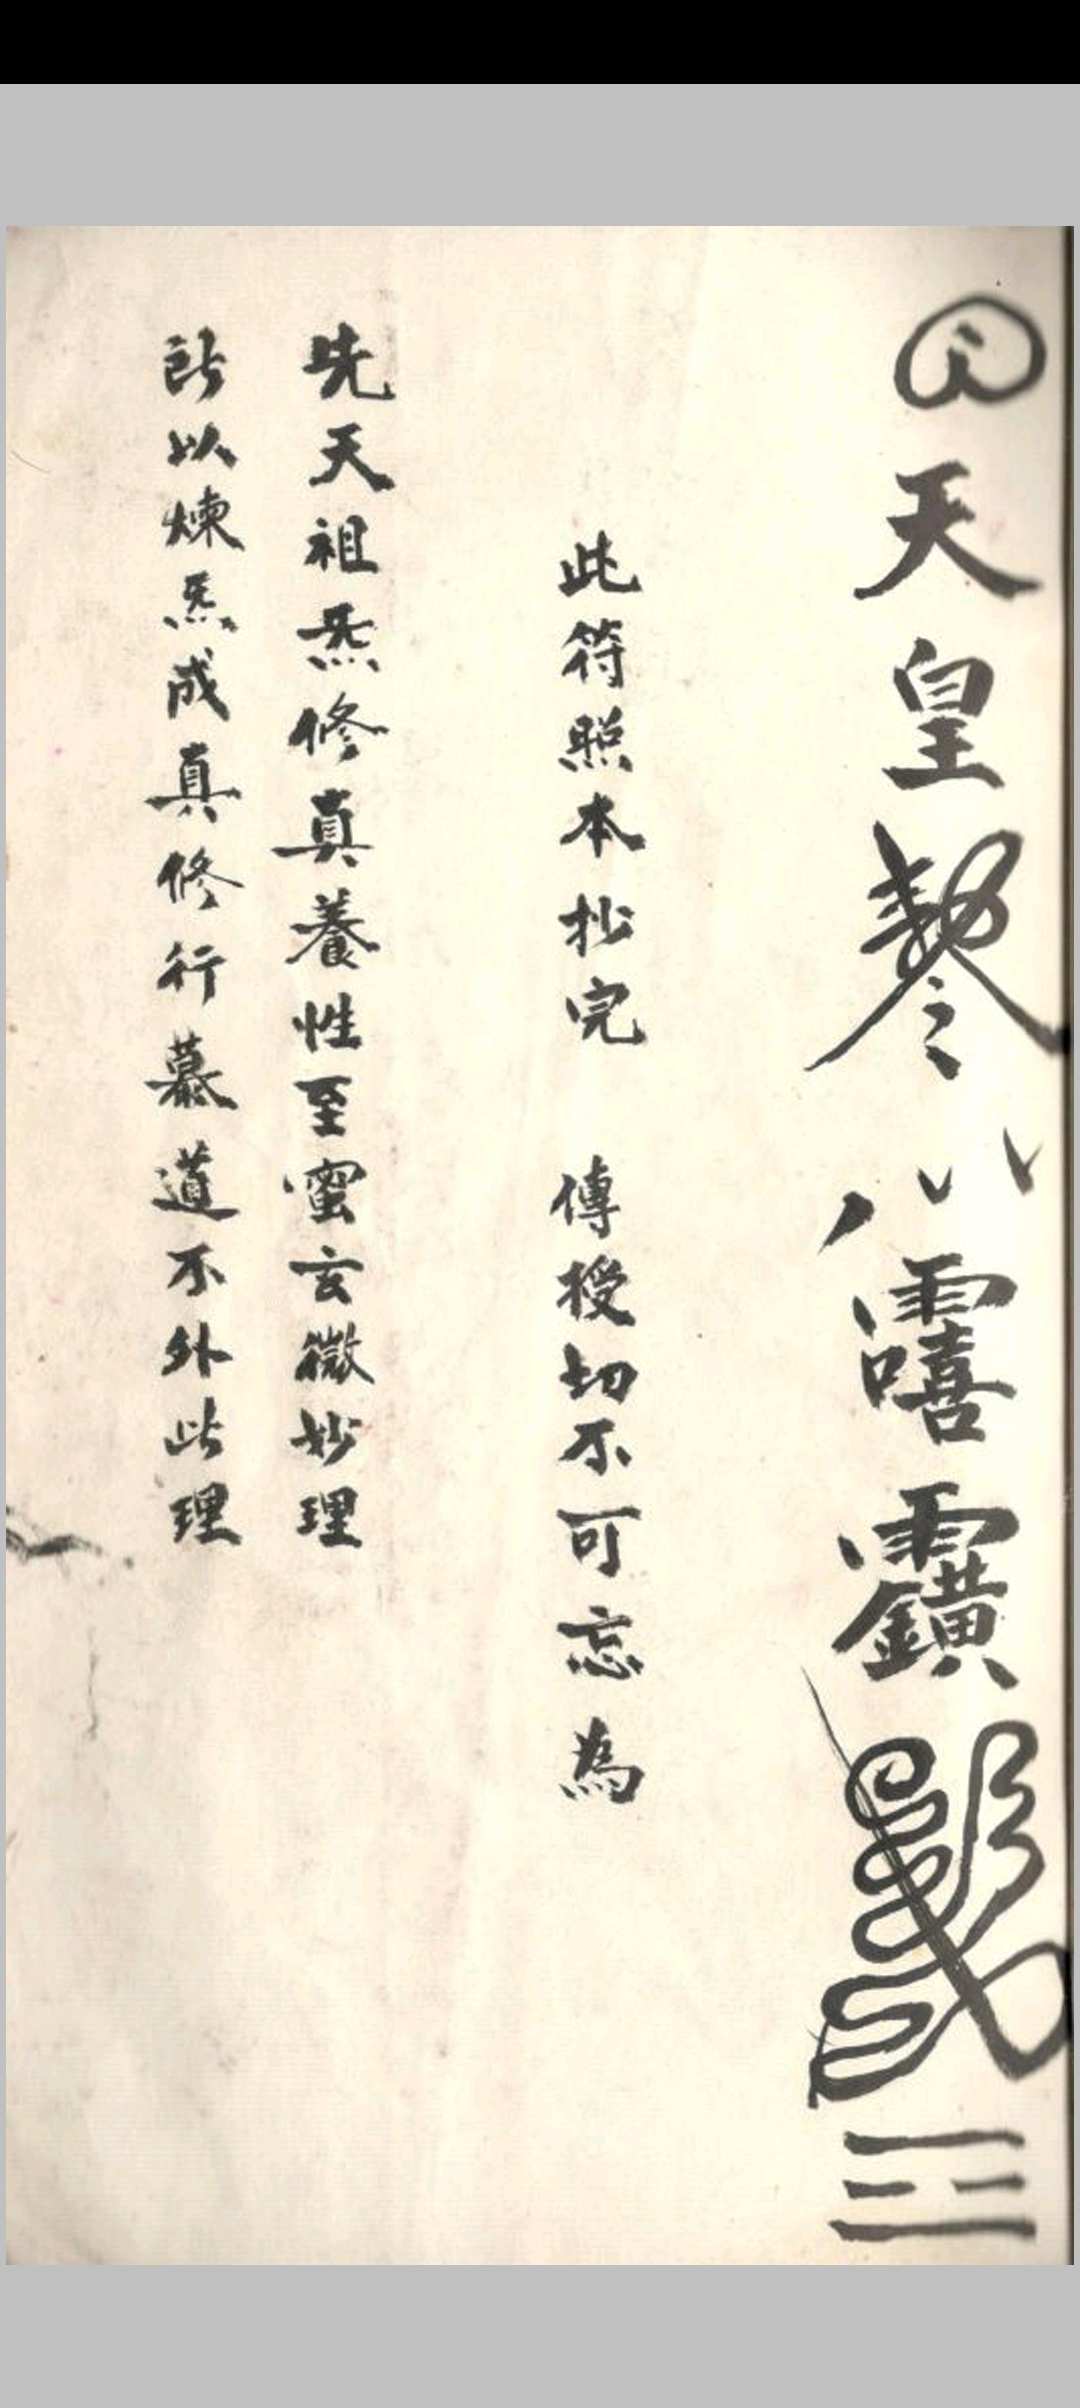 天皇
此符照本抄完 傳授切不可忘為
先天祖炁修真養性至蜜玄微妙理
所以煉炁成真修行慕道不外此理